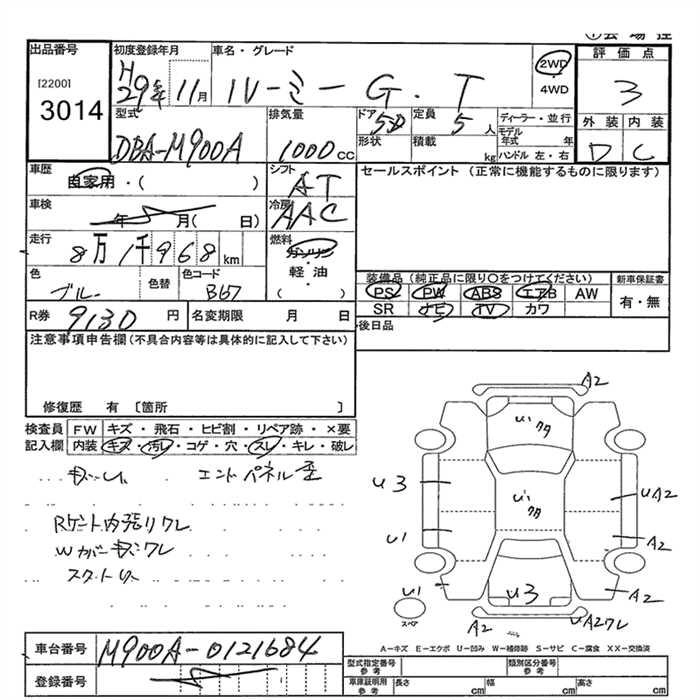 ①会場控
出品番号
[2200]
3014
初度登録年月
H
29年 11月
車名・グレード
ルーミー G.T
2WD
・
4WD
評価点
3
外装 内装
D C
型式
DBA-M900A
排気量
1000cc
ドア 5D
形状
定員 5人
積載 kg
ディーラー・並行
モデル年式 年
ハンドル 左・右
車歴
自家用・( )
シフト
AT
セールスポイント (正常に機能するものに限ります)
車検
年 月( 日)
冷房
AAC
走行
8万1千968km
燃料
ガソリン
・
軽油
( )
色
ブルー
色替
色コード
B67
装備品 (純正品に限り〇をつけてください)
PS PW ABS エアB AW
SR ナビ TV カワ
新車保証書
有・無
R券 9130 円
名変期限 月 日
後日品
注意事項申告欄(不具合内容等は具体的に記入して下さい)
修復歴 有 〔箇所 〕
検査員記入欄
FW キズ・飛石・ヒビ割・リペア跡・×要
内装 キズ・汚レ・コゲ・穴・スレ・キレ・破レ
エンドパネル歪
内張りワレ
Wカバーキズワレ
A2
U'
タタ
U3
U'
タタ
UA2
U1
A2
U1
U3
A2
UA2ワレ
スペア
A-キズ E-エクボ U-凹み W-補修跡 S-サビ C-腐食 XX-交換済
車台番号
M900A-0121684
登録番号
型式指定番号
参考
類別区分番号
参考
車庫証明用
参考
長さ cm
幅 cm
高さ cm